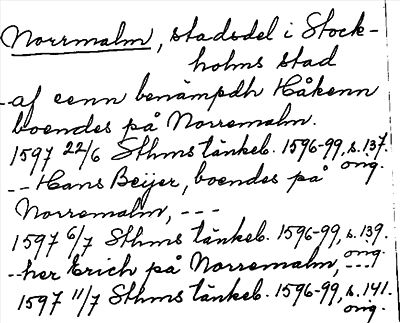 Norrmalm, stadsdel i Stock-
holms stad
--af eenn benämpdh Håkenn
boendes på Norremalm.
1597 22/6 Sthms tänkeb. 1596-99, s. 137.
orig.
-- Hans Beijer, boendes på
Norremalm, ---
1597 6/7 Sthms tänkeb. 1596-99, s. 139.
orig.
--her Erich på Norremalm, ---
1597 11/7 Sthms tänkeb. 1596-99, s. 141.
orig.